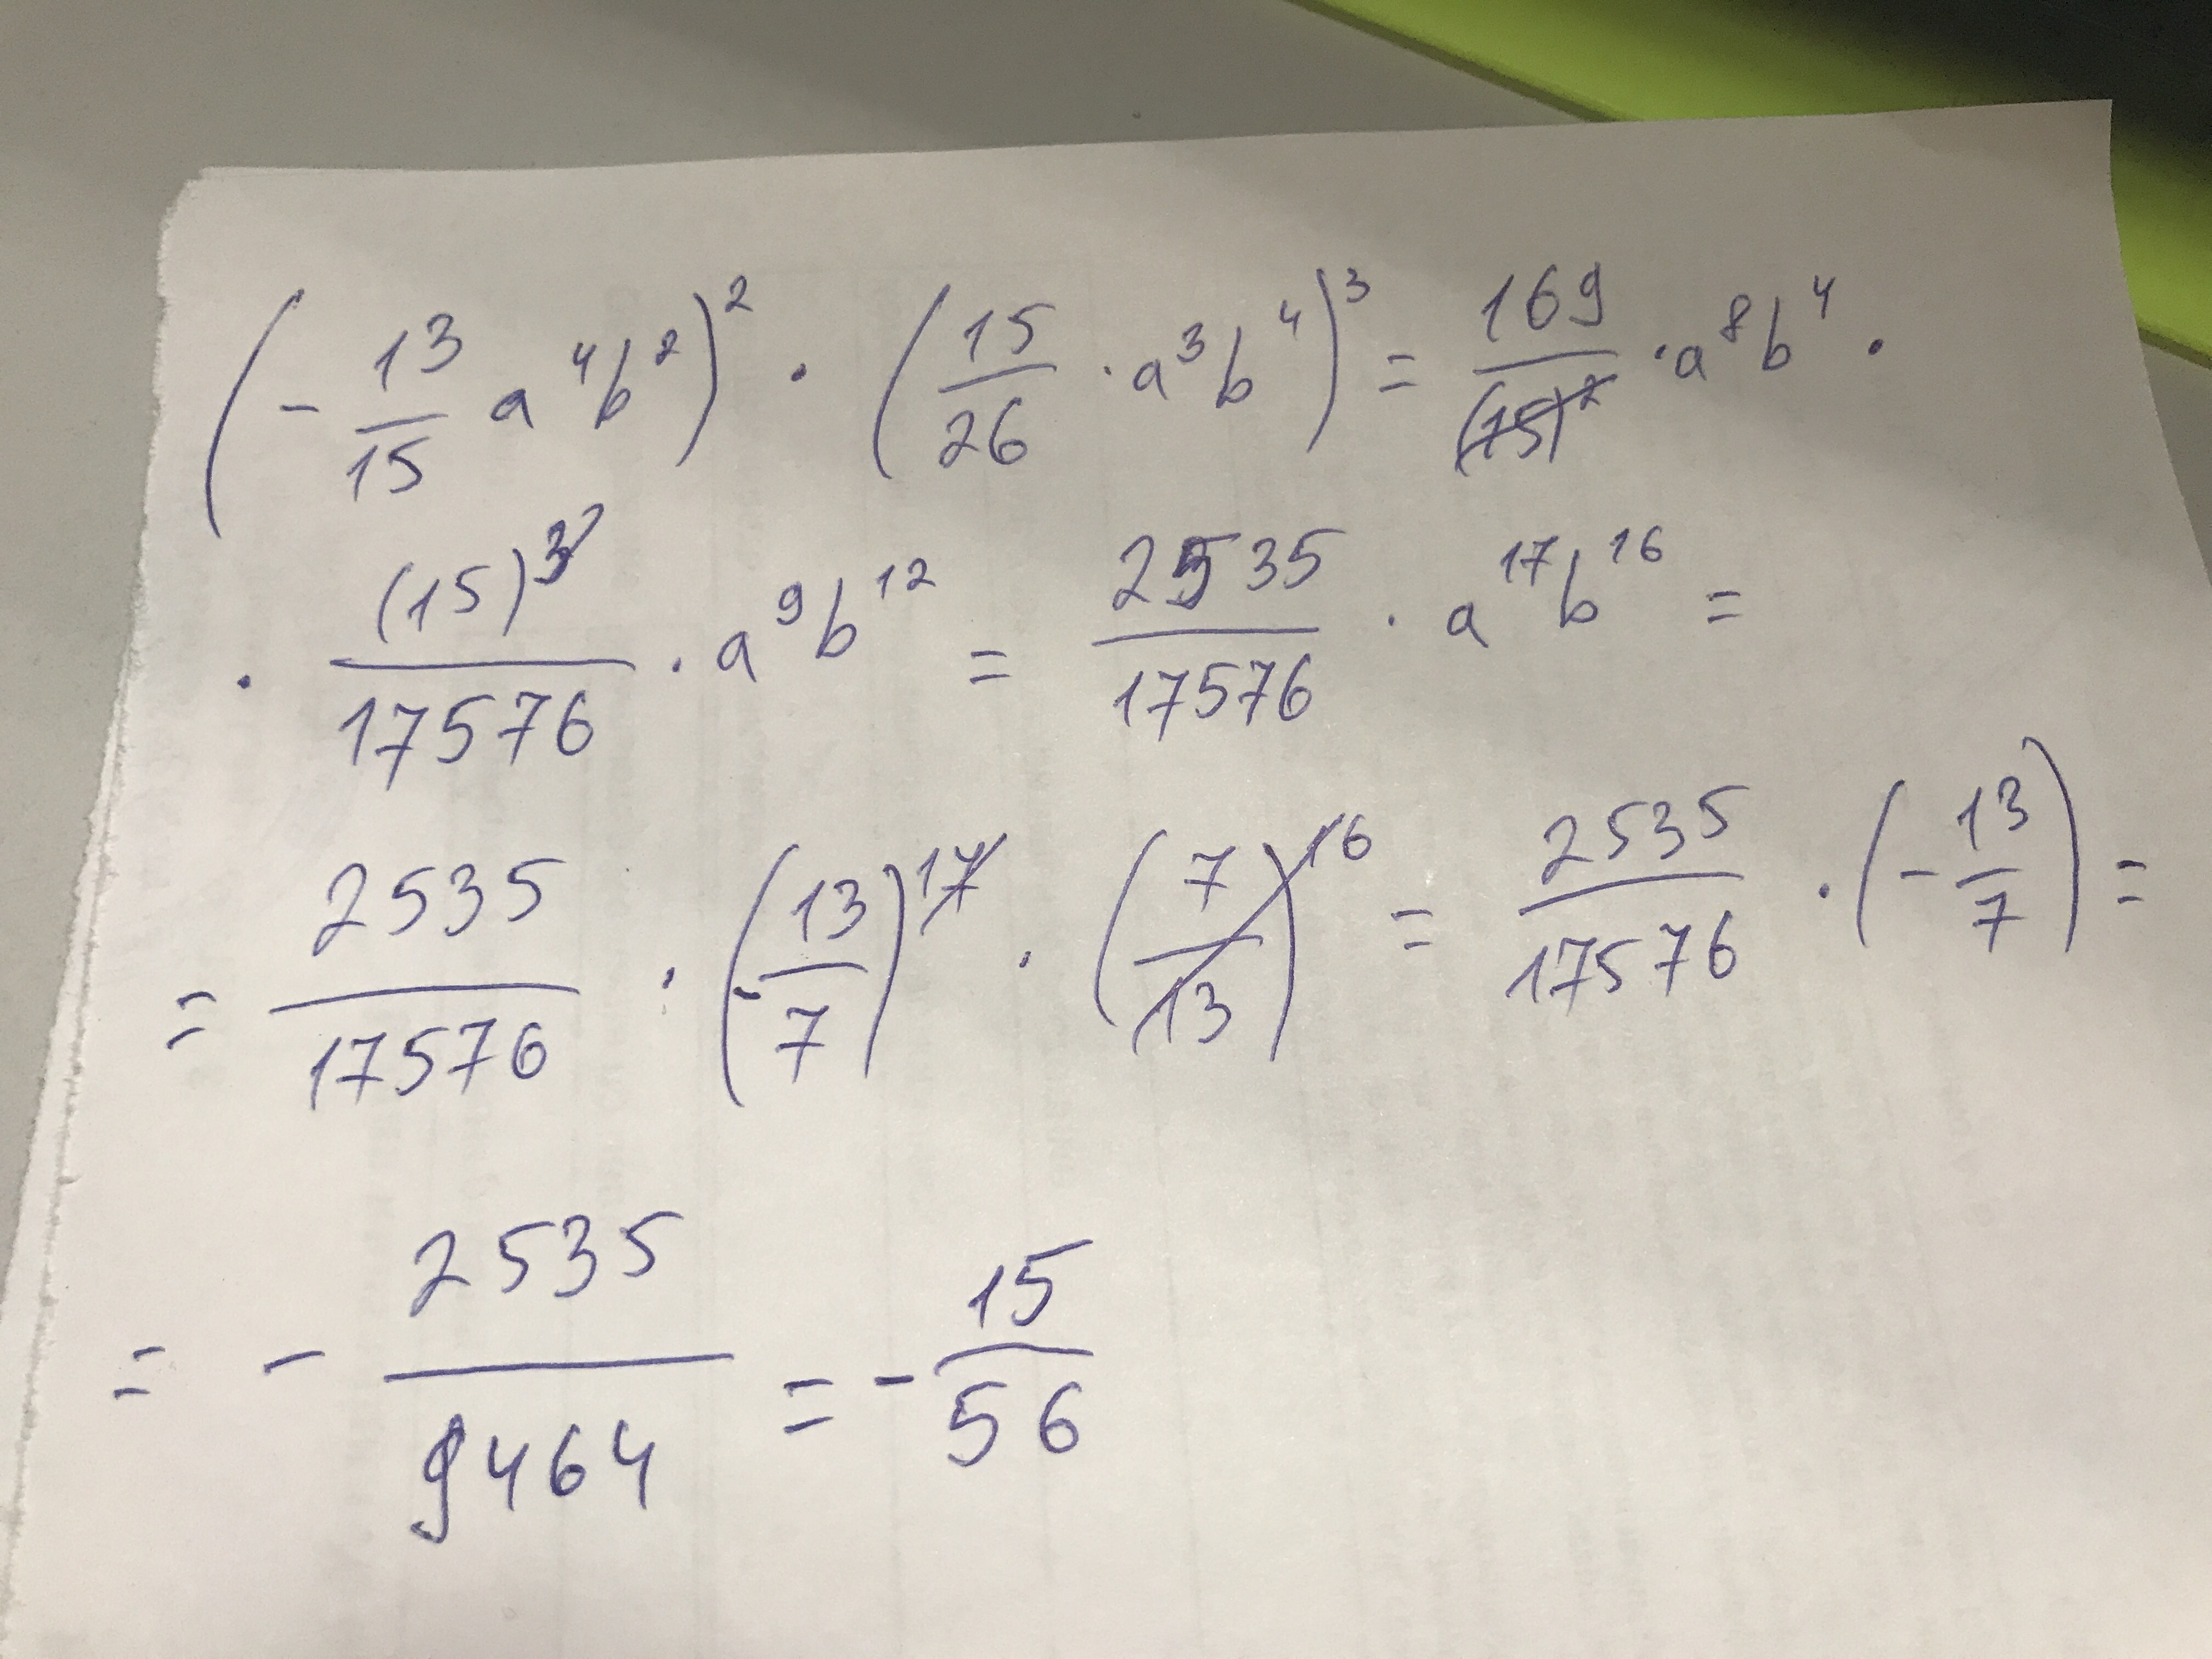 (-13/15 a⁴b²)² · (15/26 · a³b⁴)³ = 169/(15)² · a⁸b⁴ ·
· (15)³/17576 · a⁹b¹² = 2535/17576 · a¹⁷b¹⁶ =
= 2535/17576 · (-13/7)¹⁷ · (7/13)¹⁶ = 2535/17576 · (-13/7) =
= - 2535/9464 = - 15/56